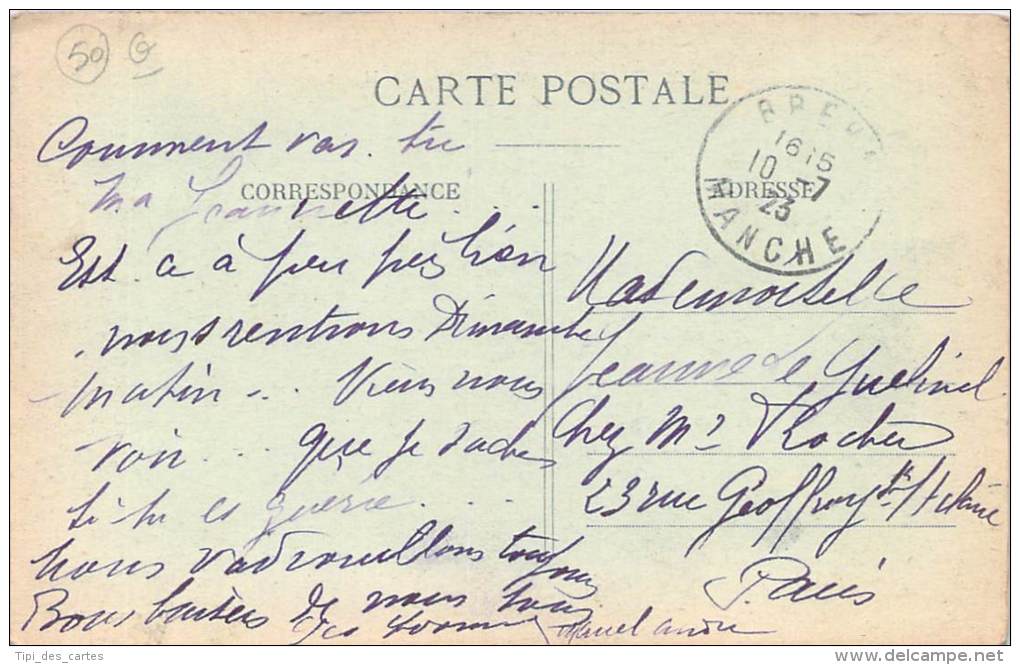 50
CARTE POSTALE
CORRESPONDANCE
ADRESSE
16 15
10 - 7
23
MANCHE
Comment vas. tu
Ma Jeannette ...
Est ce à peu près bien
nous rentrons Dimanche
matin ... Viens nous
voir ... que je sache
si tu es guérie ...
Nous vadrouillons toujours
Bons baisers de nous tous
Mademoiselle
Jeanne Le
Chez Mr Rocher
23 rue Geoffroy St Hilaire
Paris
Tipi_des_cartes
www.delcampe.net